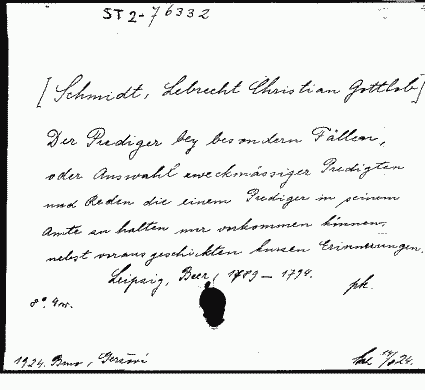 ST 2-76332
[Schmidt, Lebrecht Christian Gottlob]
Der Prediger bey besondern Fällen,
oder Auswahl zweckmässiger Predigten
und Reden die einem Prediger in seinem
Amte zu halten nur vorkommen können,
nebst vorausgeschickten kurzen Erinnerungen.
Leipzig, Beer, 1789-1794.
8°. 4w.
pk.
1924. Brno,